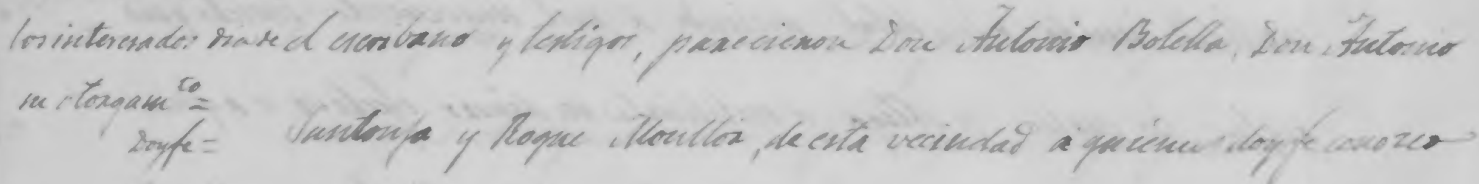 los interesados dia de el escribano y testigos, parecieron Don Antonio Botella, Don Antonio
su otorgam.to =
Doyfe = Santonja y Roque Moullor, de esta vecindad a quienes doy fe conozco